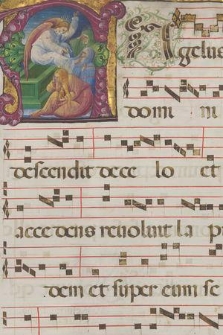 Angelus
domi ni
descendit de ce lo et
acce dens revolvit la p
dem et super eum se